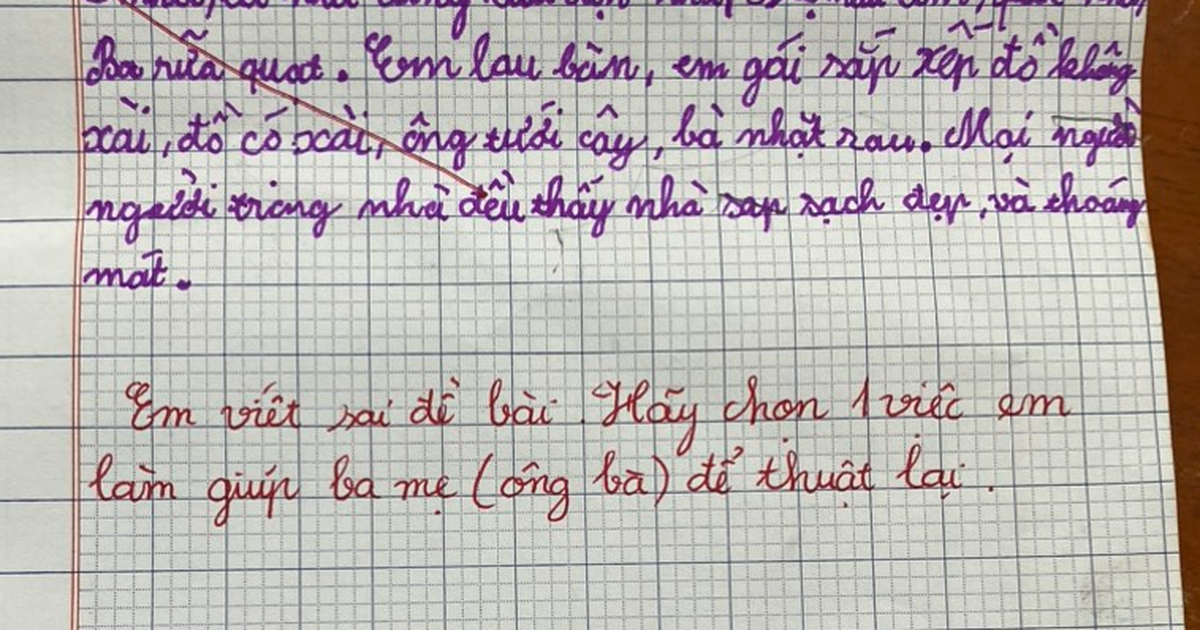 Ba rữa quạt. Em lau bàn, em gái sắp xếp đồ không
xài, đồ có xài, ông tưới cây, bà nhặt rau. Mọi người
người trong nhà đều thấy nhà sạch đẹp, và thoáng
mát.
Em viết sai đề bài. Hãy chọn 1 việc em
làm giúp ba mẹ (ông bà) để thuật lại.